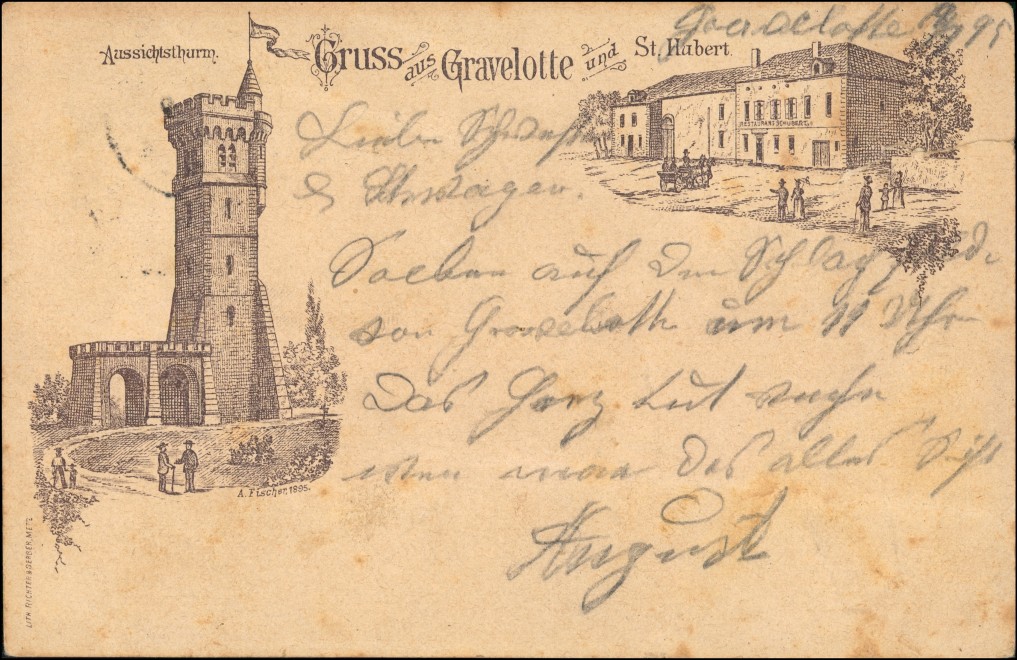 Gravelotte 95
Aussichtsthurm.
Gruss aus Gravelotte und St. Hubert.
RESTAURANT SCHUBERT
Liebe Schwester
& Schwager.
Soeben auf dem Schlachtfelde
von Gravelotte um 11 Uhr
Das Herz tut
wen man das alles Siht
August
A. Fischer, 1895.
LITH. RICHTER & DERBER, METZ